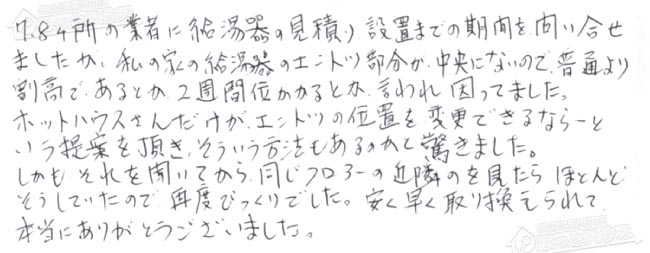 7.8ヶ所の業者に給湯器の見積り、設置までの期間を問い合せ
ましたが、私の家の給湯器のエントツ部分が中央にないので、普通より
割高であるとか、2週間位かかるとか、言われ困ってました。
ホットハウスさんだけが、エントツの位置を変更できるならーと
いう提案を頂き、そういう方法もあるのかと驚きました。
しかも、それを聞いてから、同じフロアーの近隣のを見たら、ほとんど
そうしていたので、再度びっくりでした。安く早く取り換えられて、
本当にありがとうございました。